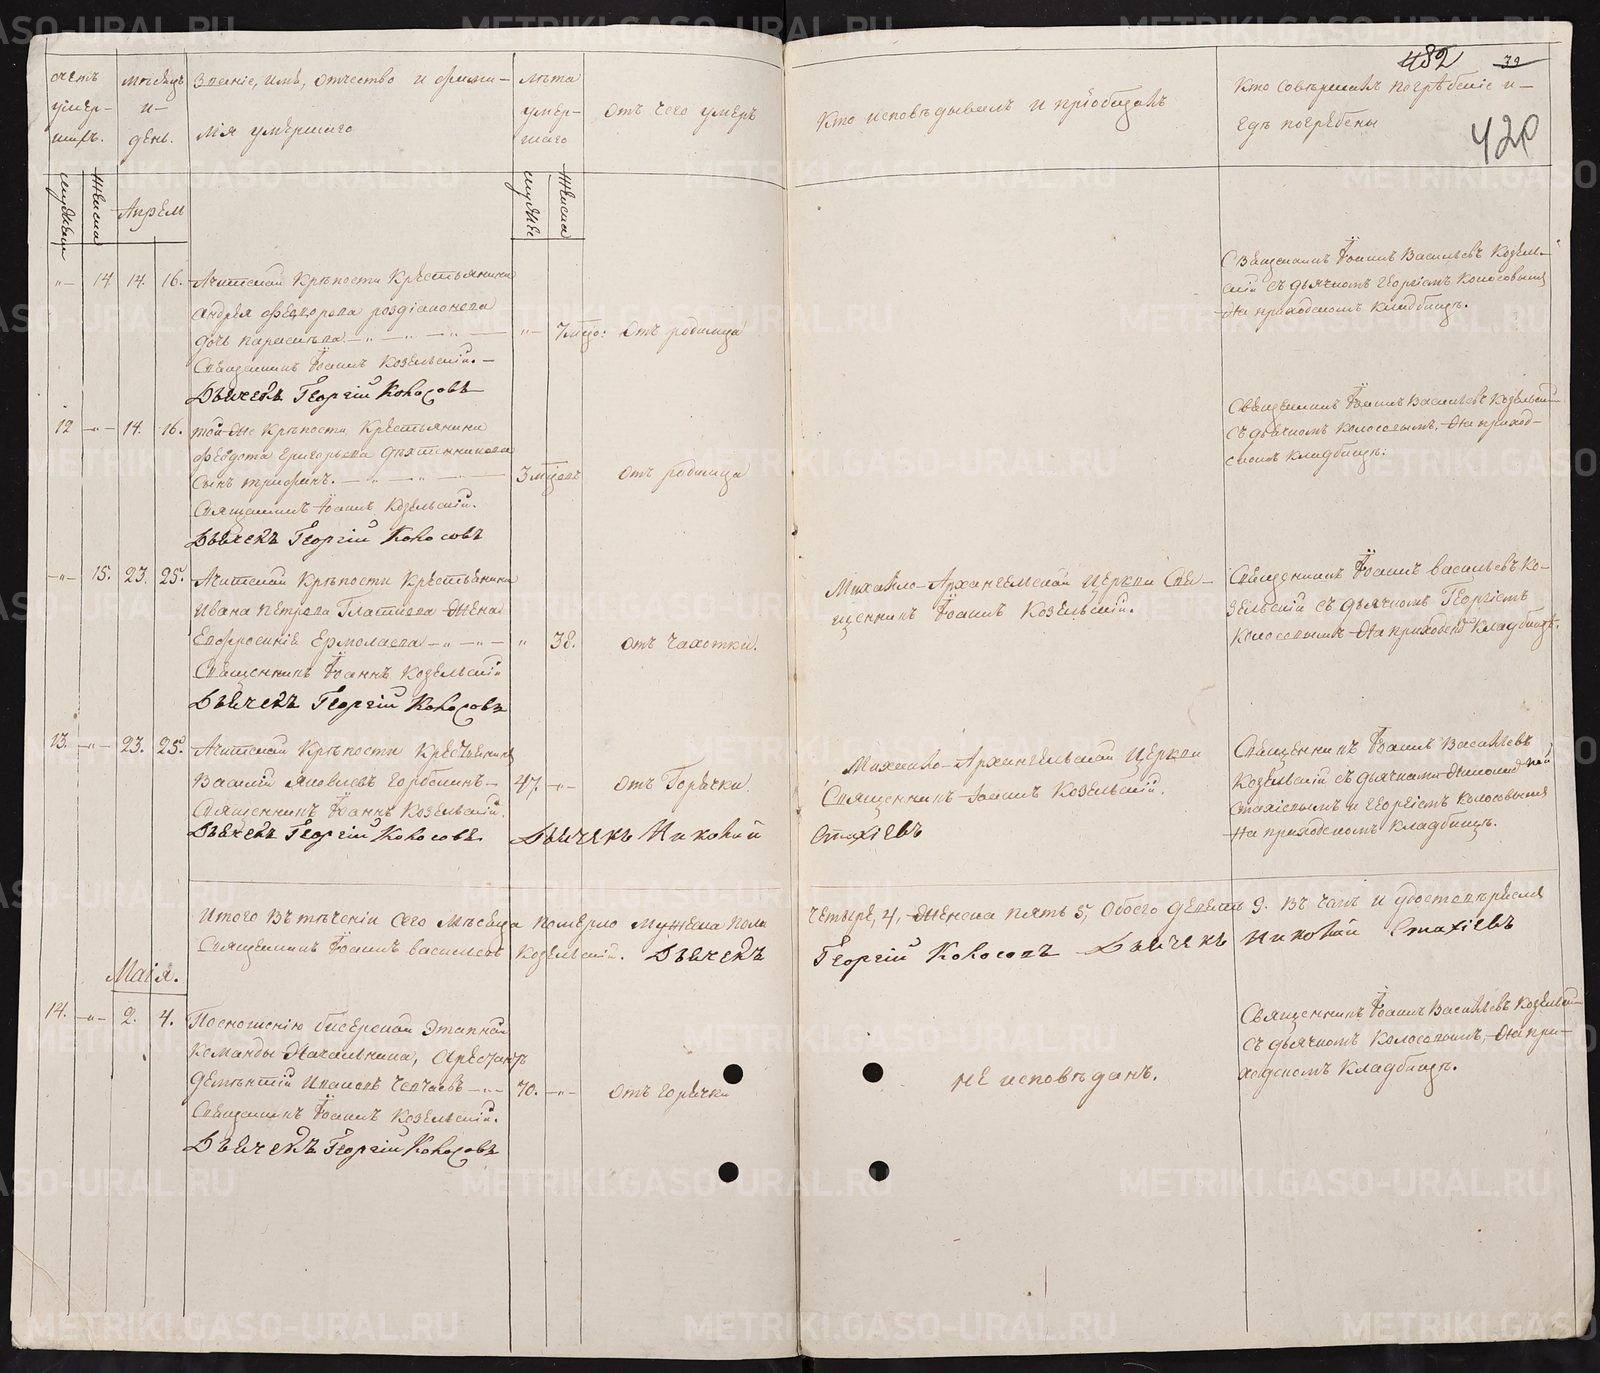 482 39
420
счетъ умер-шихъ.
мѣсяцъ и день.
Званіе, имя, отчество и фами-
лія умершаго
лѣта умер-шаго
отъ чего умеръ
Кто исповѣдывалъ и пріобщалъ
Кто совершалъ погребеніе и
гдѣ погребены
мужеска женска
Апреля
мужеска женска
-„- 14 14. 16. Ачитской Крѣпости Крестьянина
Андрея Федорова
дочь Параскева -„- -„- 7 мцо: отъ родимца
Священникъ Іоаннъ Козельскій.
Дьячекъ Георгій Колосовъ
Священникъ Іоаннъ Васильевъ Козель-
скій съ дьячкомъ Георгіемъ Колосовымъ
На приходскомъ Кладбищѣ.
12 -„- 14. 16. той-же Крѣпости Крестьянина
Федота Григорьева
Сынъ Трифонъ. -„- -„- 3 мцовъ отъ родимца
Священникъ Іоаннъ Козельскій.
Дьячекъ Георгій Колосовъ
Священникъ Іоаннъ Васильевъ Козельскій
съ дьячкомъ Колосовымъ. На приход-
скомъ кладбищѣ.
-„- 15. 23. 25. Ачитской Крѣпости Крестьянина
Ивана Петрова Жена
Евфросинія Ермолаева -„- -„- „ 38. отъ чахотки.
Священникъ Іоаннъ Козельскій
Дьячекъ Георгій Колосовъ
Михайло-Архангельской Церкви Свя-
щенникъ Іоаннъ Козельскій.
Священникъ Іоаннъ Васильевъ Ко-
зельскій съ дьячкомъ Георгіемъ
Колосовымъ На приходско Кладбищѣ.
13. -„- 23. 25. Ачитской Крѣпости Крестьянинъ
Василій Яковлевъ 47. -„- отъ Горячки.
Священникъ Іоаннъ Козельскій.
Дьячекъ Георгій Колосовъ Дьячекъ Николай Стахіевъ
Михайло-Архангельской Церкви
Священникъ Іоаннъ Козельскій.
Священникъ Іоаннъ Васильевъ
Козельскій съ дьячками Николаемъ
Стахіевымъ и Георгіемъ Колосовымъ
На приходскомъ Кладбищѣ.
Итого въ теченіи сего мѣсяца померло мужеска пола четыре, 4, Женска пять 5, Обоего девять 9. Въ чемъ и удостовѣряемъ
Священникъ Іоаннъ Васильевъ Козельскій. Дьячекъ Георгій Колосовъ Дьячекъ Николай Стахіевъ
Маія.
14. -„- 2. 4. По сношенію Бисерской Этапной
Команды Начальника, Арестантъ
Дементій Ивановъ -„- 70. -„- отъ горячки
Священникъ Іоаннъ Козельскій.
Дьячекъ Георгій Колосовъ
не исповѣданъ.
Священникъ Іоаннъ Васильевъ Козельскій
съ дьячкомъ Колосовымъ, На при-
ходскомъ Кладбищѣ.
METRIKI.GASO-URAL.RU